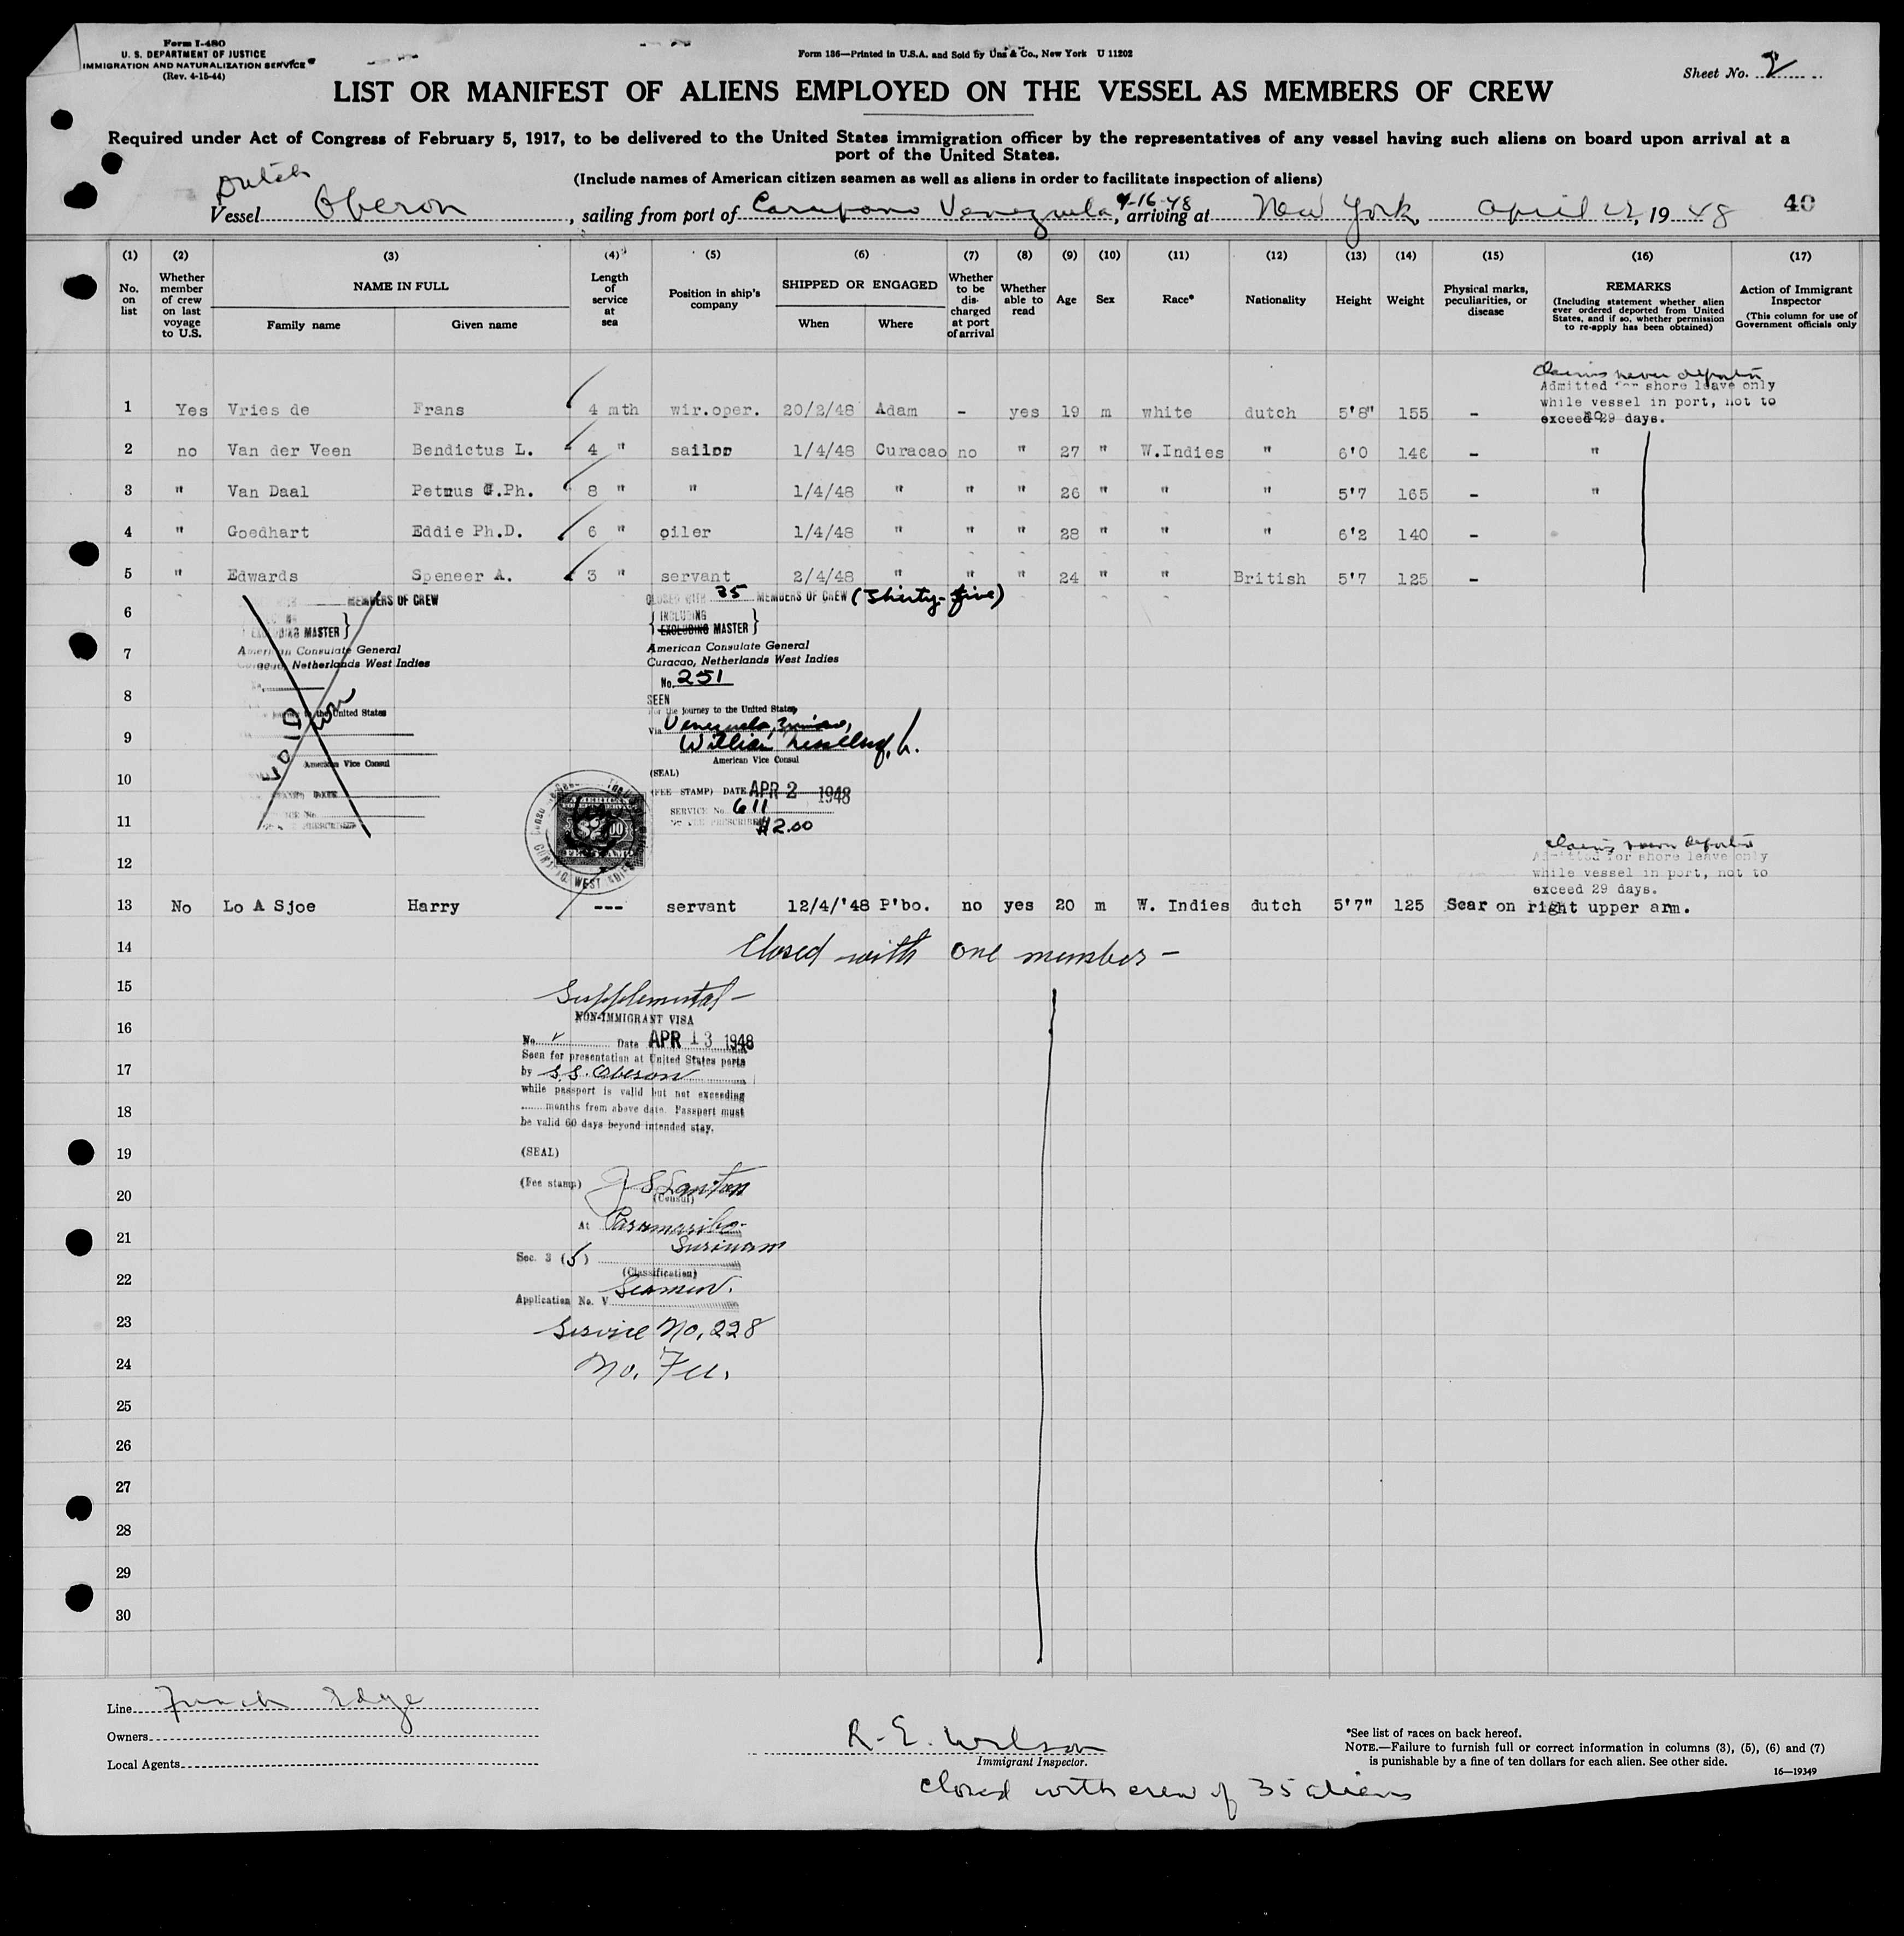 Form I-480
U. S. DEPARTMENT OF JUSTICE
IMMIGRATION AND NATURALIZATION SERVICE
(Rev. 4-15-44)
Form 186—Printed in U.S.A. and Sold by Unz & Co., New York U 11202
Sheet No. 2
LIST OR MANIFEST OF ALIENS EMPLOYED ON THE VESSEL AS MEMBERS OF CREW
Required under Act of Congress of February 5, 1917, to be delivered to the United States immigration officer by the representatives of any vessel having such aliens on board upon arrival at a
port of the United States.
(Include names of American citizen seamen as well as aliens in order to facilitate inspection of aliens)
Dutch
Vessel Oberon, sailing from port of Carupano Venezuela, 4-16-48 arriving at New York April 22, 19 48 40
(1) No. on list
(2) Whether member of crew on last voyage to U.S.
(3) NAME IN FULL
Family name Given name
(4) Length of service at sea
(5) Position in ship's company
(6) SHIPPED OR ENGAGED
When Where
(7) Whether to be discharged at port of arrival
(8) Whether able to read
(9) Age
(10) Sex
(11) Race*
(12) Nationality
(13) Height
(14) Weight
(15) Physical marks, peculiarities, or disease
(16) REMARKS
(Including statement whether alien ever ordered deported from United States, and if so, whether permission to re-apply has been obtained)
(17) Action of Immigrant Inspector
(This column for use of Government officials only
Claims never deported
Admitted for shore leave only
while vessel in port, not to
exceed 29 days.
1 Yes Vries de Frans 4 mth wir.oper. 20/2/48 Adam - yes 19 m white dutch 5'8" 155 -
2 no Van der Veen Bendictus L. 4 " sailor 1/4/48 Curacao no " 27 " W.Indies " 6'0 146 - "
3 " Van Daal Petrus G.Ph. 8 " " 1/4/48 " " " 26 " " " 5'7 165 - "
4 " Goedhart Eddie Ph.D. 6 " oiler 1/4/48 " " " 28 " " " 6'2 140 -
5 " Edwards Speneer A. 3 " servant 2/4/48 " " " 24 " " British 5'7 125 -
6
7
8
9
10
11
12
MEMBERS OF CREW
EXCLUDING MASTER
American Consulate General
Curacao, Netherlands West Indies
journey to the United States
American Vice Consul
CLOSED WITH 35 MEMBERS OF CREW (Thirty-five)
INCLUDING
EXCLUDING MASTER
American Consulate General
Curacao, Netherlands West Indies
No. 251
SEEN
For the journey to the United States
Via Venezuela,
William
American Vice Consul
(SEAL)
(FEE STAMP) DATE APR 2 1948
SERVICE No. 611
$2.00
AMERICAN
FEE STAMP
Claims never deported
Admitted for shore leave only
while vessel in port, not to
exceed 29 days.
13 No Lo A Sjoe Harry --- servant 12/4/'48 P'bo. no yes 20 m W. Indies dutch 5'7" 125 Scar on right upper arm.
14 Closed with one member -
15 Supplemental -
16 NON-IMMIGRANT VISA
No. Date APR 13 1948
Seen for presentation at United States ports
17 by S.S. Oberon
while passport is valid but not exceeding
18 months from above date. Passport must
be valid 60 days beyond intended stay.
19 (SEAL)
20 (Fee stamp)
(Consul)
21 At Paramaribo
Surinam
Sec. 3 (5)
22 (Classification)
Seamen.
Application No. V
23 Service No. 228
24 No. Fee.
25
26
27
28
29
30
Line Funch Edye
Owners
Local Agents
R. E. Wilson
Immigrant Inspector.
closed with crew of 35 aliens
*See list of races on back hereof.
NOTE.—Failure to furnish full or correct information in columns (3), (5), (6) and (7)
is punishable by a fine of ten dollars for each alien. See other side.
16—19349